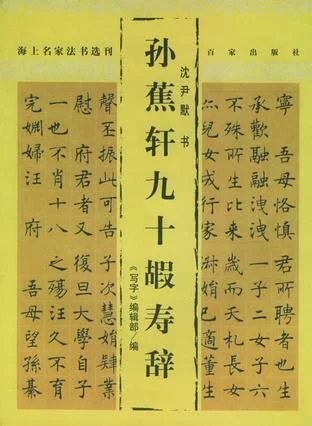 海上名家法书选刊
百家出版社
沈尹默书
孙蕉轩九十嘏寿辞
《写字》编辑部/编
寧吾母恪慎君所聘者也
承歡融融洩洩一子二女子六
不殊所生比来歲而夭札長女
尒兒女成行家淋娟已適董生
聲丕振此可告子次慧娟肄業
慰府君者又復旦大學自子
一也不肖十八之殤汪久不育
完婣婦汪府吾母望孫綦